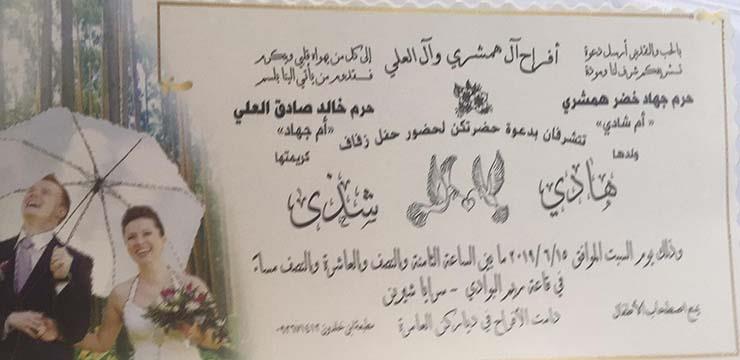 أفراح آل همشري وآل العلي
بالحب والتقدير أرسل دعوة
إلى كل من يهواه قلبي ويكرم
تشريفكم شرف لنا ومودة
حرم جهاد خضر همشري
«أم شادي»
حرم خالد صادق العلي
«أم جهاد»
تتشرفان بدعوة حضرتكن لحضور حفل زفاف
ولدها
كريمتها
هادي
شذى
وذلك يوم السبت الموافق ٢٠١٩/٦/١٥ ما بين الساعة الثامنة والنصف والعاشرة والنصف مساءً
في قاعة مريم البوادي - سرايا شيرين
يمنع اصطحاب الأطفال
دامت الأفراح في دياركن العامرة